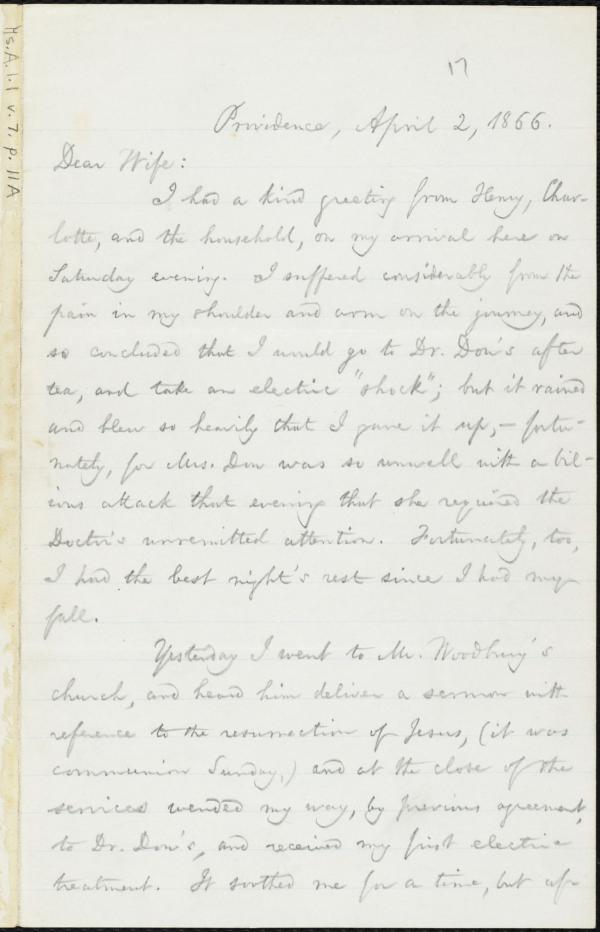 17
Ms.A.1.1 v.7, p.11A
Providence, April 2, 1866.
Dear Wife:
I had a kind greeting from Henry, Char-
lotte, and the household, on my arrival here on
Saturday evening. I suffered considerably from the
pain in my shoulder and arm on the journey, and
so concluded that I would go to Dr. Dow's after
tea, and take an electric "shock"; but it rained
and blew so heavily that I gave it up,— fortu-
nately, for Mrs. Dow was so unwell with a bil-
ious attack that evening that she required the
Doctor's unremitted attention. Fortunately, too,
I had the best night's rest since I had my
fall.
Yesterday I went to Mr. Woodbury's
church, and heard him deliver a sermon with
reference to the resurrection of Jesus, (it was
communion Sunday,) and at the close of the
services wended my way, by previous agreement,
to Dr. Dow's, and received my first electric
treatment. It soothed me for a time, but af-